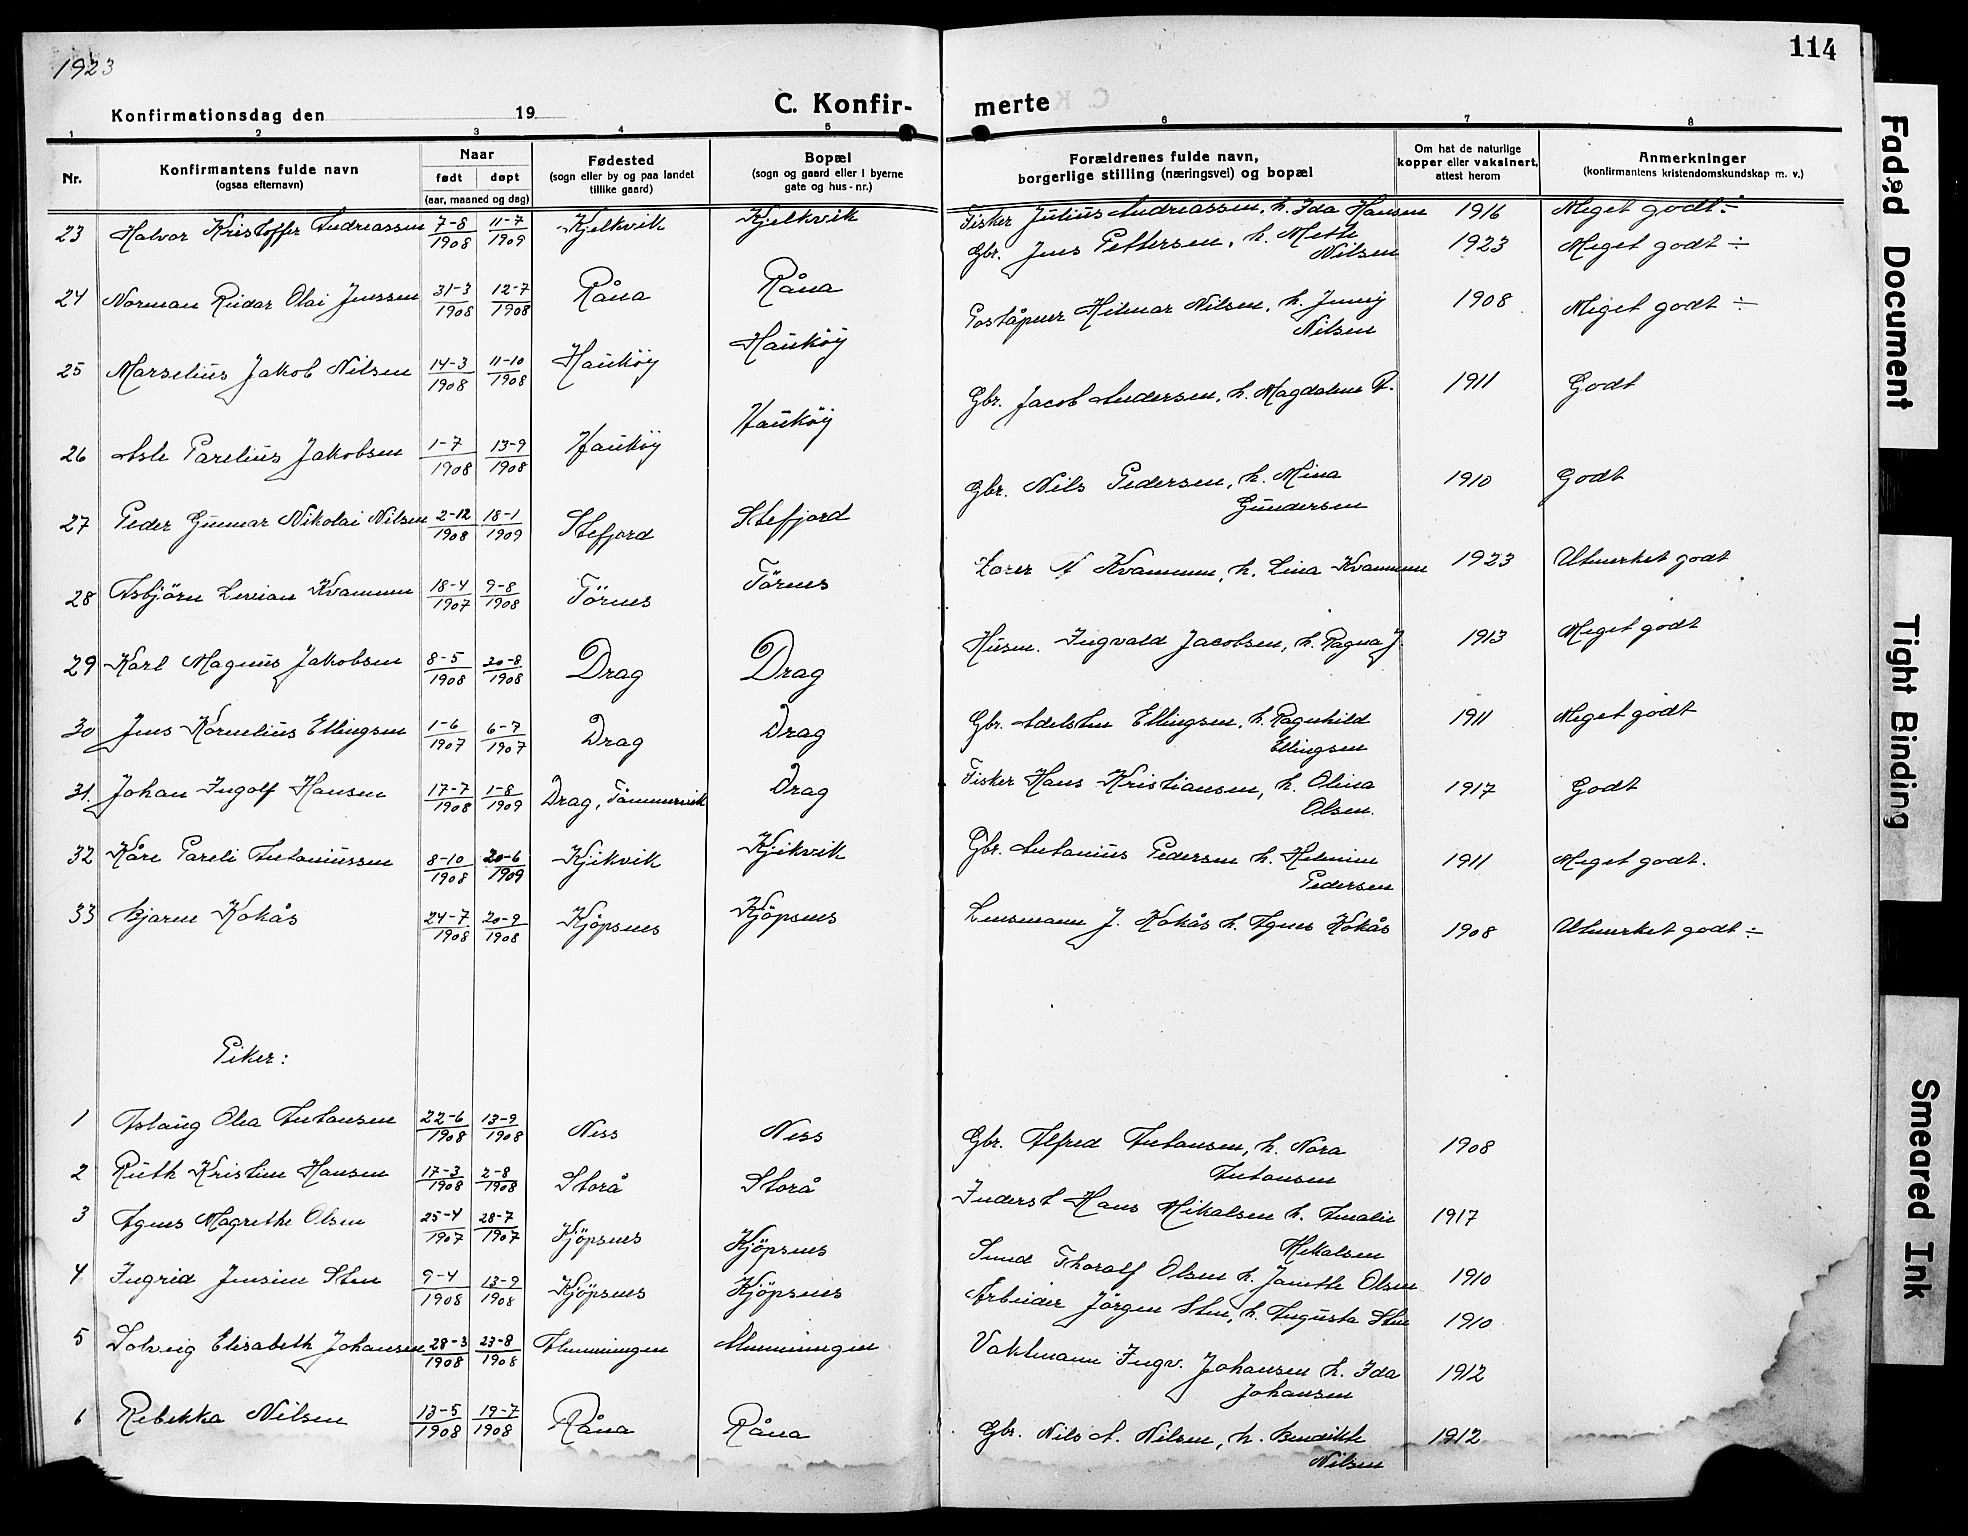 1923
114
Konfirmationsdag den 19
C. Konfir-
merte
1 2 3 4 5 6 7 8
Nr.
Konfirmantens fulde navn
(ogsaa efternavn)
Naar
født døpt
(aar, maaned og dag)
Fødested
(sogn eller by og paa landet
tillike gaard)
Bopæl
(sogn og gaard eller i byerne
gate og hus-nr.)
Forældrenes fulde navn,
borgerlige stilling (næringsvei) og bopæl
Om hat de naturlige
kopper eller vaksinert,
attest herom
Anmerkninger
(konfirmantens kristendomskundskap m. v.)
23 Halvor Kristoffer Andreassen 7-8 1908 11-7 1909 Kjelkvik Kjelkvik Fisker Julius Andreassen, h. Ida Hansen 1916 Meget godt ÷
24 Norman Reidar Olai Jenssen 31-3 1908 12-7 1908 Råna Råna Gbr. Jens Pettersen, h. Mette 1923 Meget godt ÷
Nilsen
25 Marselius Jakob Nilsen 14-3 1908 11-10 1908 Haukøy Haukøy Poståpner Hilmar Nilsen, h. Jenny 1908 Meget godt ÷
Nilsen
26 Asle Parelius Jakobsen 1-7 1908 13-9 1908 Haukøy Haukøy Gbr. Jacob Andersen, h. Magdalena A. 1911 Godt
27 Peder Gunnar Nikolai Nilsen 2-12 1908 18-1 1909 Stefjord Stefjord Gbr. Nils Pedersen, h. Mina 1910 Godt
Gundersen
28 Asbjörn Levian Kvammen 18-4 1907 9-8 1908 Törnes Törnes Lærer A Kvammen, h. Lina Kvammen 1923 Utmerket godt
29 Karl Magnus Jakobsen 8-5 1908 20-8 1908 Drag Drag Husm. Ingvald Jacobsen, h. Ragna J. 1913 Meget godt
30 Jens Kornelius Ellingsen 1-6 1907 6-7 1907 Drag Drag Gbr. Adelsten Ellingsen, h. Ragnhild 1911 Meget godt
Ellingsen
31. Johan Ingolf Hansen 17-7 1908 1-8 1909 Drag, Tömmervik Drag Fisker Hans Kristiansen, h. Olina 1917 Godt
Olsen.
32 Kåre Pareli Antoniussen 8-10 1908 20-6 1909 Kjikvik Kjikvik Gbr. Antonius Pedersen h. Helmine 1911 Meget godt.
Pedersen
33 Bjarne Kokås 24-7 1908 20-9 1908 Kjöpsnes Kjöpsnes Lensmann J. Kokås h. Agnes Kokås 1908 Utmerket godt ÷
Piker:
1 Aslaug Olea Antonsen 22-6 1908 13-9 1908 Ness Ness Gbr. Alfred Antonsen, h. Nora 1908
Antonsen
2 Ruth Kristine Hansen 17-3 1908 2-8 1908 Storå Storå Inderst Hans Mikalsen h. Amalie 1917
Mikalsen
3 Agnes Magrethe Olsen 25-4 1907 28-7 1907 Kjöpsnes Kjöpsnes Smed Thoralf Olsen h. Janette Olsen 1910
4 Ingrid Jensine Sten 9-4 1908 13-9 1908 Kjöpsnes Kjöpsnes Arbeider Jörgen Sten, h. Augusta Sten 1910
5 Solveig Elisabeth Johansen 28-3 1908 23-8 1908 Hemmingen Vaktmann Ingv. Johansen h. Ida 1912
Johansen
6 Rebekka Nilsen 13-5 1908 19-7 1908 Råna Råna Gbr. Nils A. Nilsen, h. Bendikte 1912
Nilsen
Faded Document
Tight Binding
Smeared Ink